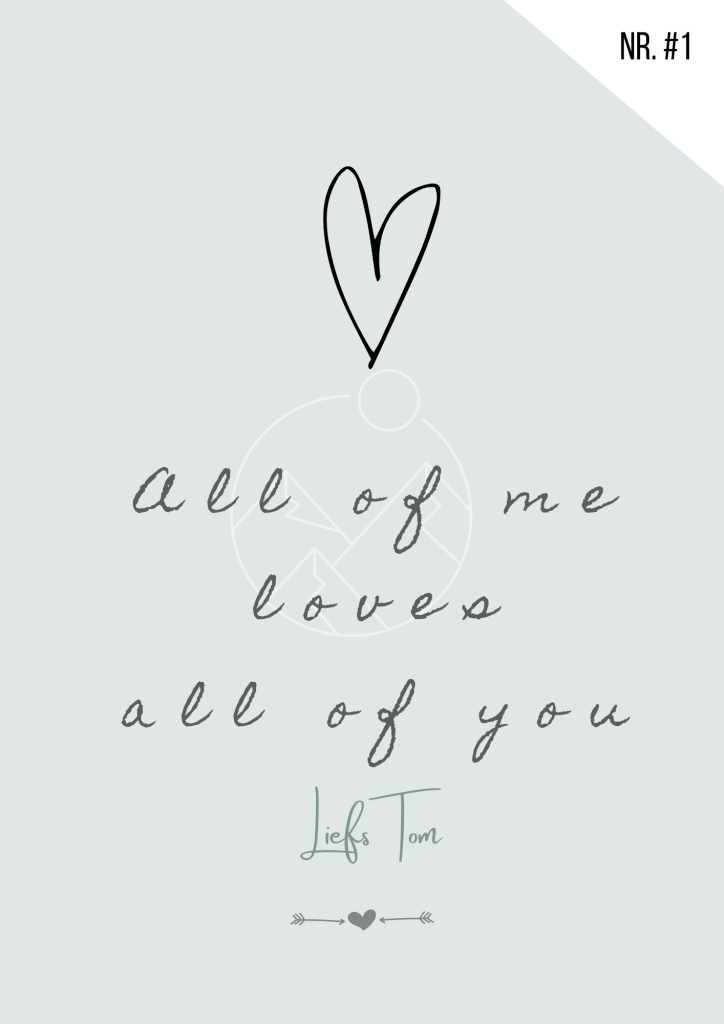 NR. #1
All of me
loves
all of you
Liefs Tom